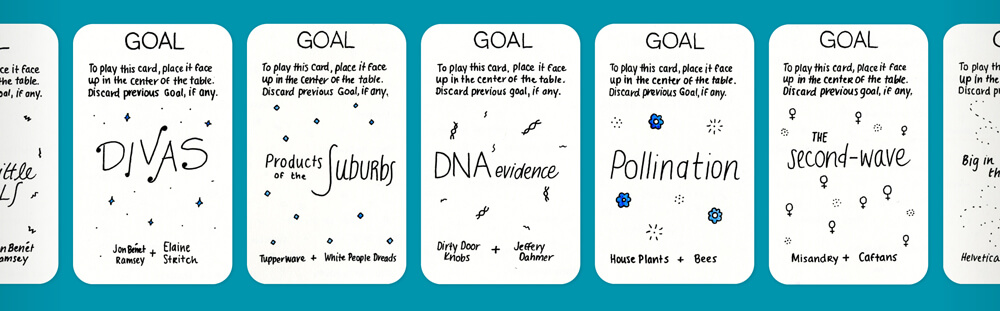 ce it face
the table.
oal, if any.
ittle
LS
n Benét
amsey
GOAL
To play this card, place it face
up in the center of the table.
Discard previous Goal, if any.
DIVAS
JonBenét
Ramsey + Elaine
Stritch
GOAL
To play this card, place it face
up in the center of the table.
Discard previous Goal, if any.
Products
of the Suburbs
Tupperware + White People Dreads
GOAL
To play this card, place it face
up in the center of the table.
Discard previous Goal, if any.
DNA evidence
Dirty Door
Knobs + Jeffery
Dahmer
GOAL
To play this card, place it face
up in the center of the table.
Discard previous Goal, if any.
Pollination
House Plants + Bees
GOAL
To play this card, place it face
up in the center of the table.
Discard previous goal, if any.
THE
second-wave
Misandry + Caftans
G
To play th
up in the
Discard p
Big in
th
Helvetica